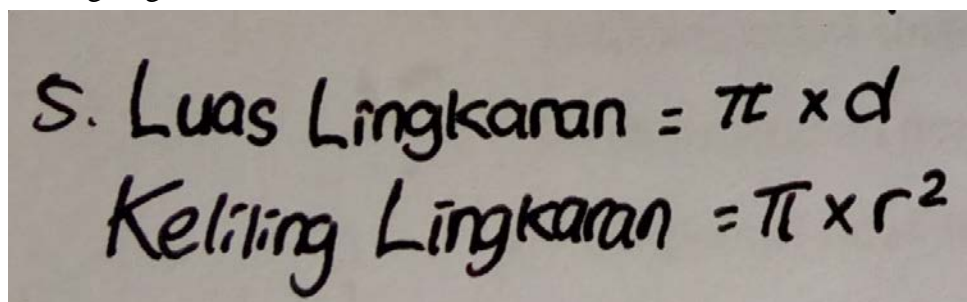 5. Luas Lingkaran = π × d
Keliling Lingkaran = π × r²